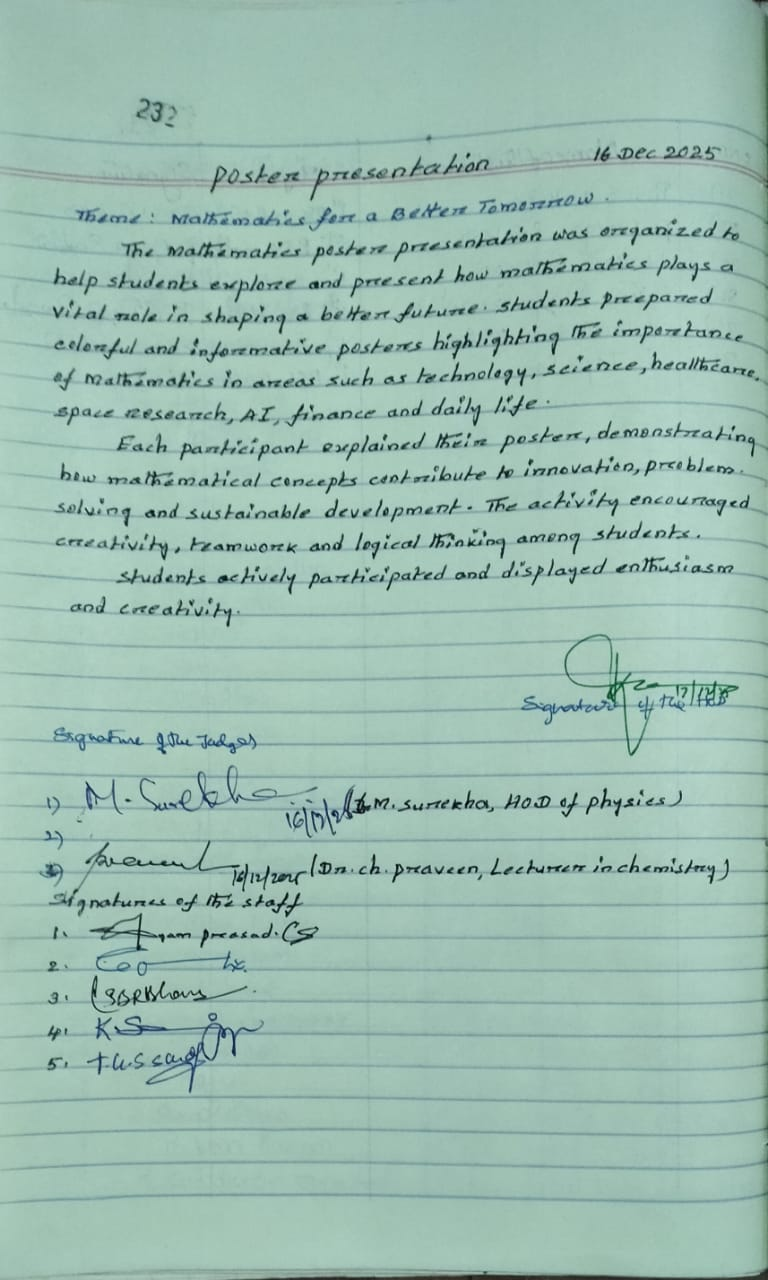 232
16 Dec 2025
Poster presentation
Theme: Mathematics for a Better Tomorrow.
The Mathematics poster presentation was organized to
help students explore and present how mathematics plays a
vital role in shaping a better future. Students prepared
colorful and informative posters highlighting the importance
of Mathematics in areas such as technology, science, healthcare,
space research, AI, finance and daily life.
Each participant explained their poster, demonstrating
how mathematical concepts contribute to innovation, problem-
solving and sustainable development. The activity encouraged
creativity, teamwork and logical thinking among students.
Students actively participated and displayed enthusiasm
and creativity.
Signature of the HOD
Signature of the Judges
1) M. Surekha 16/12/25 (M. Surekha, HOD of physics)
2)
3) 16/12/2025 (Dr. Ch. Praveen, Lecturer in chemistry)
Signatures of the staff
1. prasad.
2.
3.
4. K.
5.